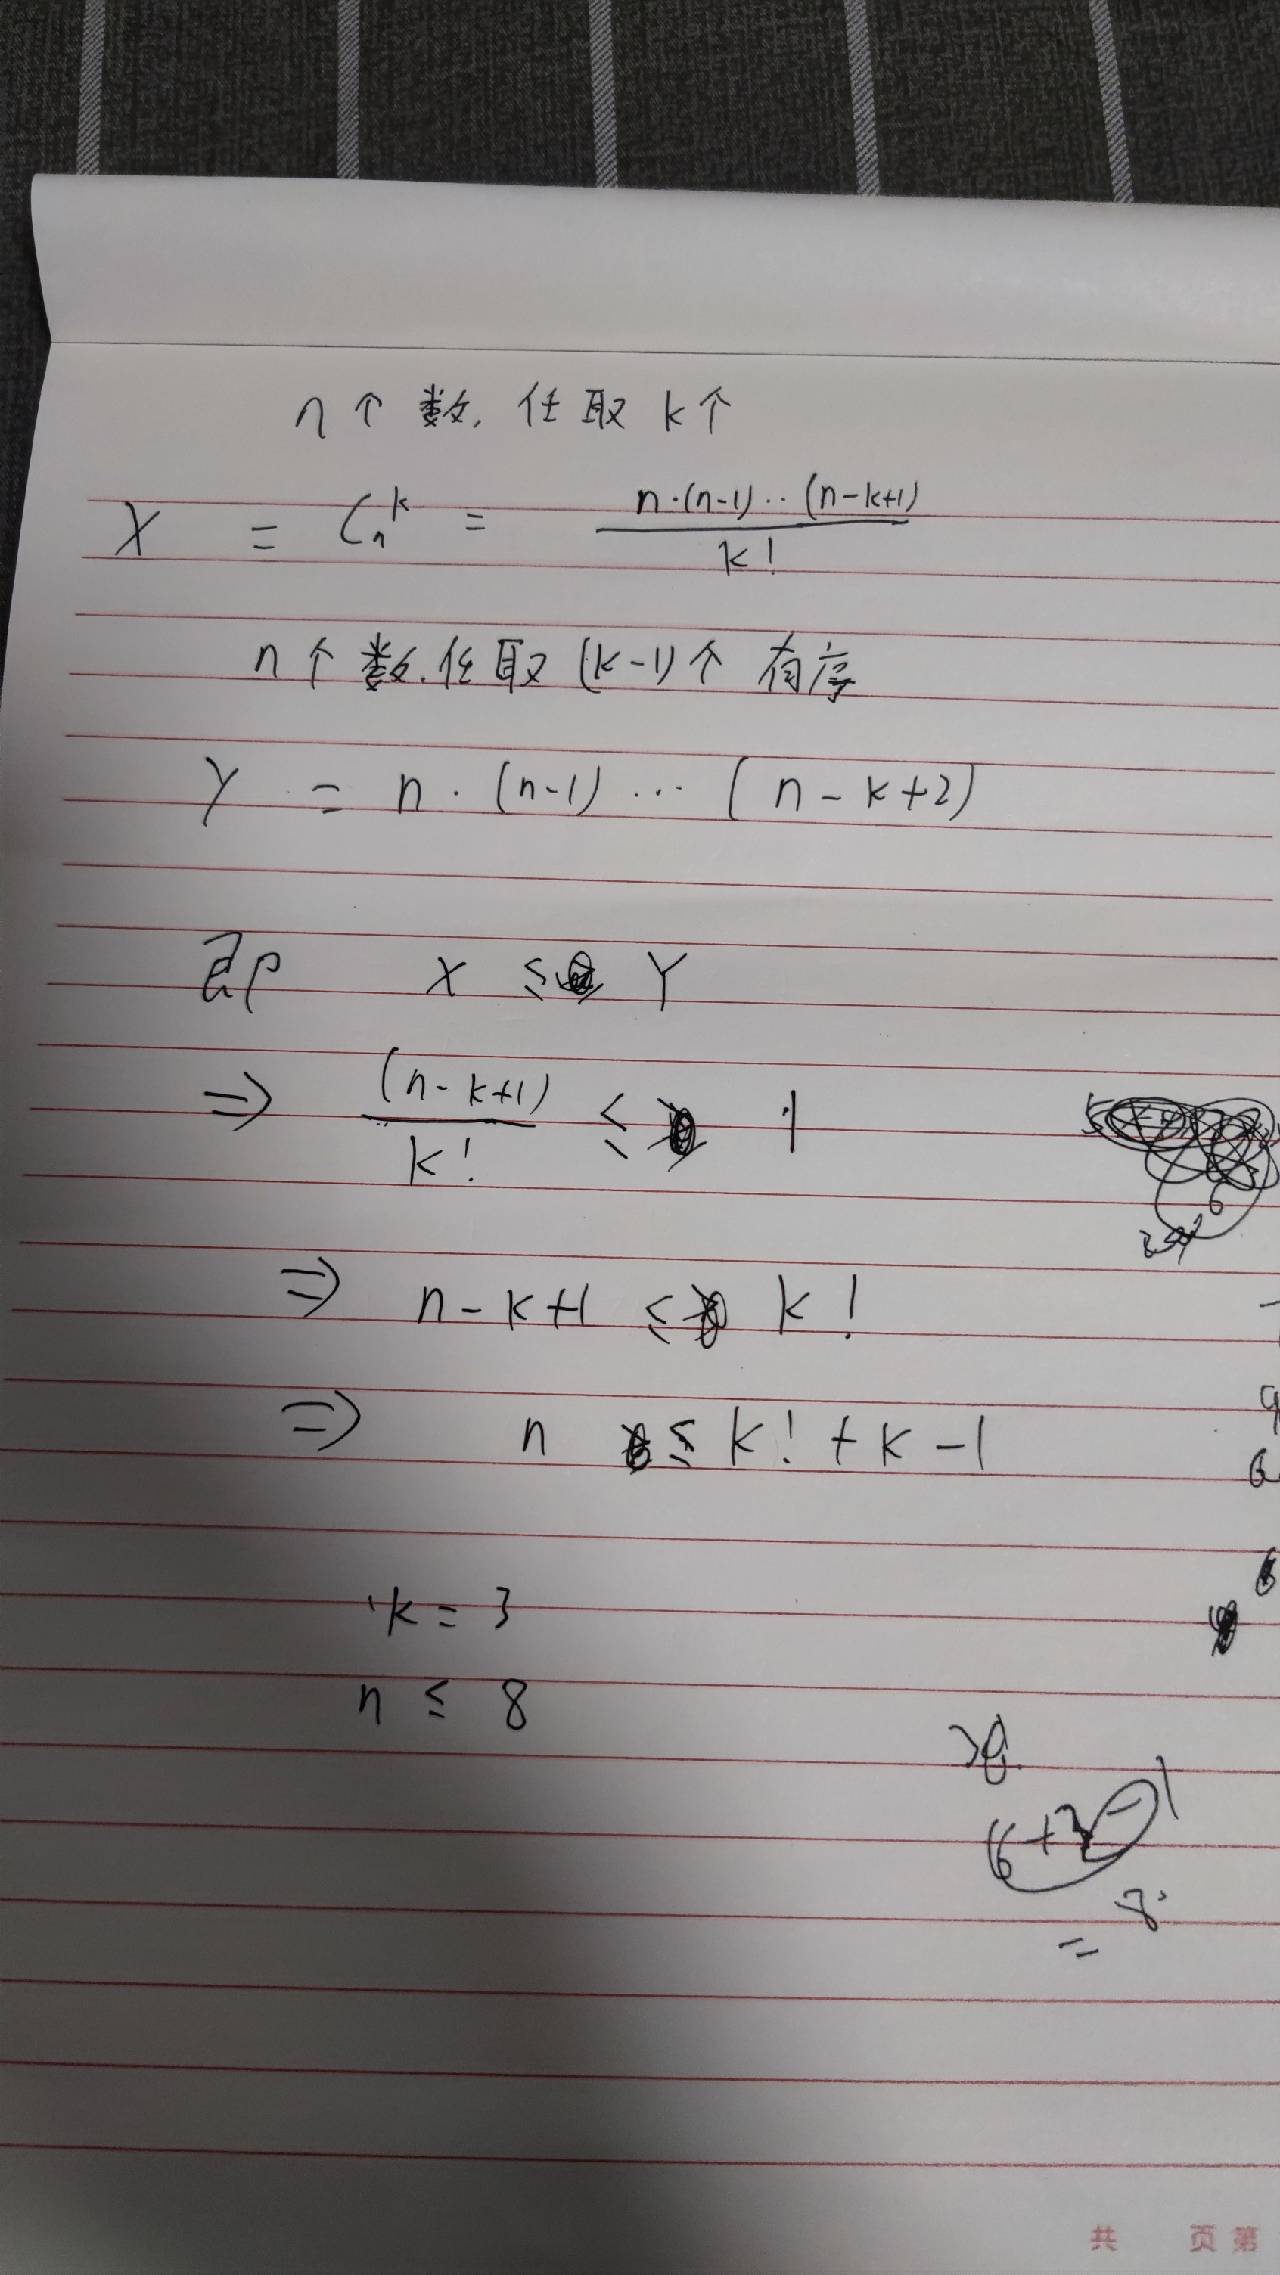 n个数,任取k个
X = C_n^k = n·(n-1)··(n-k+1) / k!
n个数.任取(k-1)个 有序
Y = n·(n-1)···(n-k+2)
即 X ≤ Y
⇒ (n-k+1) / k! ≤ 1
⇒ n-k+1 ≤ k!
⇒ n ≤ k!+k-1
k=3
n ≤ 8
6+3-1
= 8
共 页 第